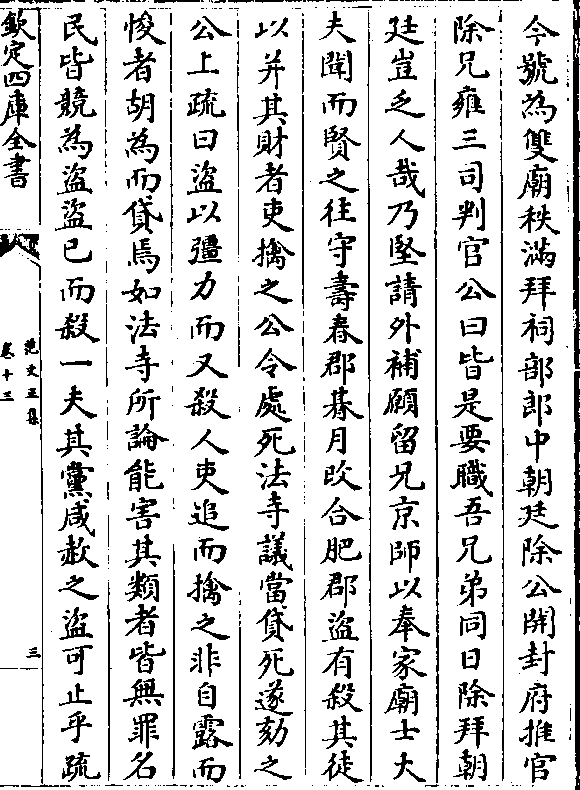 今號為雙廟秩滿拜祠部郎中朝廷除公開封府推官
除兄雍三司判官公曰皆是要職吾兄弟同日除拜朝
廷豈乏人哉乃堅請外補願留兄京師以奉家廟士大
夫聞而賢之往守壽春郡朞月改合肥郡盜有殺其徒
以并其財者吏擒之公令處死法寺議當貸死遂劾之
公上疏曰盜以彊力而又殺人吏追而擒之非自露而
悛者胡為而貸焉如法寺所論能害其類者皆無罪名
民皆競為盜盜已而殺一夫其黨咸赦之盜可止乎疏
欽定四庫全書
范文正集
卷十三
三